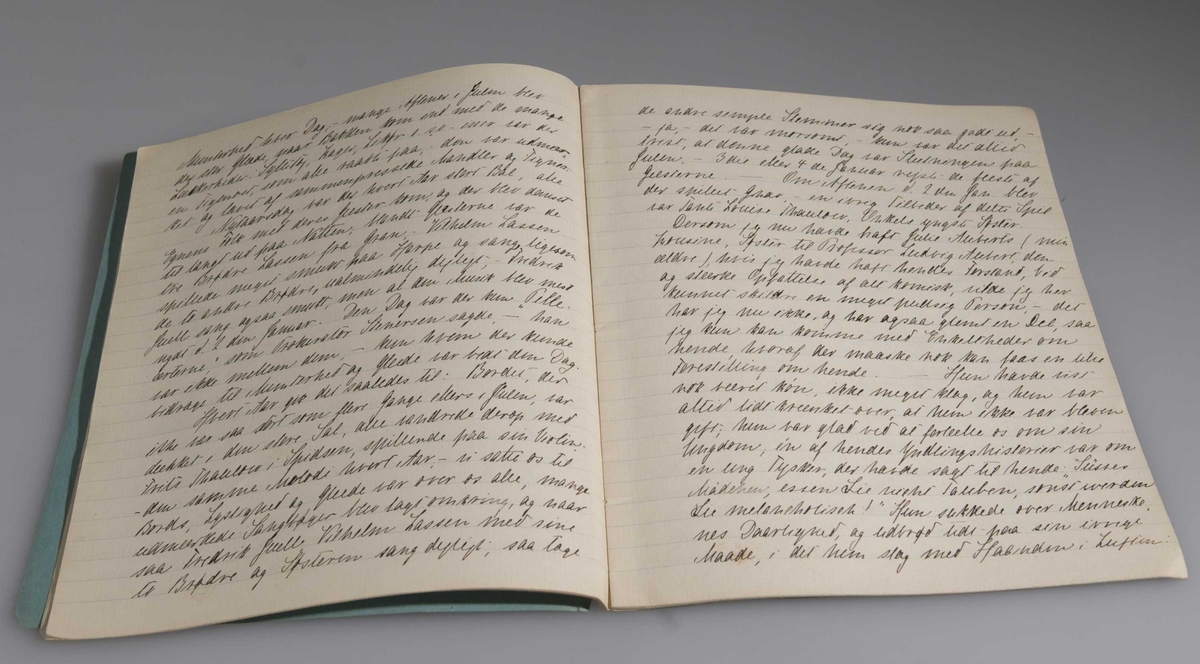 Munterhed hver Dag, - mange Aftener i Julen blev
der stor Glæde, naar Bydden kom ind med de mange
Lækkerbidsk. Syltetøj, Kager, Likør o. s. v. - men var der
en Ligeover, som alle satte paa, - den var udmær-
ket og lavet af sammenpressede Mandler og Figner.
Nytaarsdag var der hvert Aar stort Bal, alle
Egnens Folk med deres Gjester kom, og der blev danset
til langt ud paa Natten. Blandt Gjæsterne var de
tre Brødre Lassen fra Gran. Vilhelm Lassen
spillede meget smukt paa Harpe og sang, ligesom
de to andre Brødre, ualmindelig deiligt. - Fredrik
Juell sang ogsaa smukt, men al den Musik blev mest
nydt d. 2 den Januar. Den Dag var der kun "Pelle-
arterne", som Prokurator Stenersen sagde, - han
var ikke mellem dem, - kun hvem der kunde
bidrage til Munterhed og Glæde var bedt den Dag.
Hvert Aar gik det saaledes til: Bordet, der
ikke var saa stort som flere Gange ellers i Julen, var
dækket i den store Sal, alle vandrede derop med
Frits Thaulow i Spidsen, spillende paa sin Violin.
- den samme Melodi hvert Aar, - vi satte os til
Bords, Lystighed og Glæde var over os alle, mange
udmærkede Sangbøger blev lagt omkring, og naar
saa Fredrik Juell, Vilhelm Lassen med sine
to Brødre og Søsteren sang deiligt, saa tog
de andre simple Stemmer sig nok saa godt ud, -
- ja, - det var morsomt, - kun var det altid
trist, at denne glade Dag var Slutningen paa
Julen. - 3 die eller 4 de Januar rejste de fleste af
Gjæsterne. — Om Aftenen d. 2 den Jan. blev
der spillet Gnav, - en ivrig Tilbeder af dette Spil
var Tante Louise Thaulow, Onkels yngste Søster.
Dersom jeg nu havde haft Julie Auberts (min
Kousine, Søster til Professor Ludvig Aubert, den
ældre), hvis jeg havde haft hendes Forstand, Vid
og stærke Opfattelse af alt komisk, vilde jeg her
kunnet skildre en meget pudsig Person, - det
har jeg nu ikke, og har ogsaa glemt en Del, saa
jeg kun kan komme med Enkeltheder om
hende, hvoraf der maaske nok kan faas en lille
Forestilling om hende. — Hun havde vist
nok været køn, ikke meget klog, og hun var
altid lidt krænket over, at hun ikke var bleven
gift; hun var glad ved at fortælle os om sin
Ungdom, en af hendes Yndlingshistorier var om
en ung Tysker, der havde sagt til hende: "Süsses
Mädchen, essen Sie nicht Tauben, sonst werden
Sie melancholisch!" Hun sukkede over Menneske-
nes Daarlighed, og udbrød tidt paa sin ivrige
Maade, i det hun slog med Haanden i Luften: